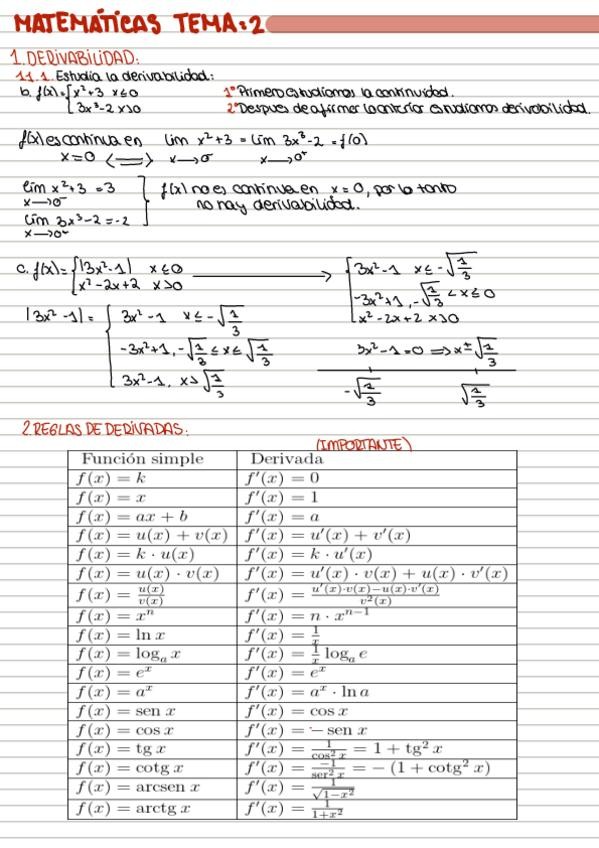 MATEMÁTICAS TEMA:2
1. DERIVABILIDAD:
1.1.1. Estudia la derivabilidad:
b. f(x)={x²+3 x≤0 1º Primero estudiamos la continuidad.
3x³-2 x>0 2º Despues de afirmar lo anterior estudiamos derivabilidad.
f(x) es continua en lim x²+3 = lim 3x³-2 = f(0)
x=0 <=> x→0⁻ x→0⁺
lim x²+3 = 3 f(x) no es continua en x=0, por lo tanto
x→0⁻ no hay derivabilidad.
lim 3x³-2 = -2
x→0⁺
c. f(x)={|3x²-1| x≤0 → {3x²-1 x≤-√1/3
x²-2x+2 x>0 -3x²+1, -√1/3 <x≤0
x²-2x+2 x>0
|3x²-1|= {3x²-1 x≤-√1/3
-3x²+1, -√1/3 ≤x≤√1/3 3x²-1=0 ⟹ x±√1/3
3x²-1, x>√1/3 -√1/3 √1/3
2. REGLAS DE DERIVADAS:
(IMPORTANTE)
Función simple Derivada
f(x) = k f′(x) = 0
f(x) = x f′(x) = 1
f(x) = ax + b f′(x) = a
f(x) = u(x) + v(x) f′(x) = u′(x) + v′(x)
f(x) = k · u(x) f′(x) = k · u′(x)
f(x) = u(x) · v(x) f′(x) = u′(x) · v(x) + u(x) · v′(x)
f(x) = u(x)/v(x) f′(x) = u′(x)·v(x)−u(x)·v′(x)/v²(x)
f(x) = xⁿ f′(x) = n · xⁿ⁻¹
f(x) = ln x f′(x) = 1/x
f(x) = logₐ x f′(x) = 1/x logₐ e
f(x) = eˣ f′(x) = eˣ
f(x) = aˣ f′(x) = aˣ · ln a
f(x) = sen x f′(x) = cos x
f(x) = cos x f′(x) = − sen x
f(x) = tg x f′(x) = 1/cos² x = 1 + tg² x
f(x) = cotg x f′(x) = −1/sen² x = − (1 + cotg² x)
f(x) = arcsen x f′(x) = 1/√1−x²
f(x) = arctg x f′(x) = 1/1+x²